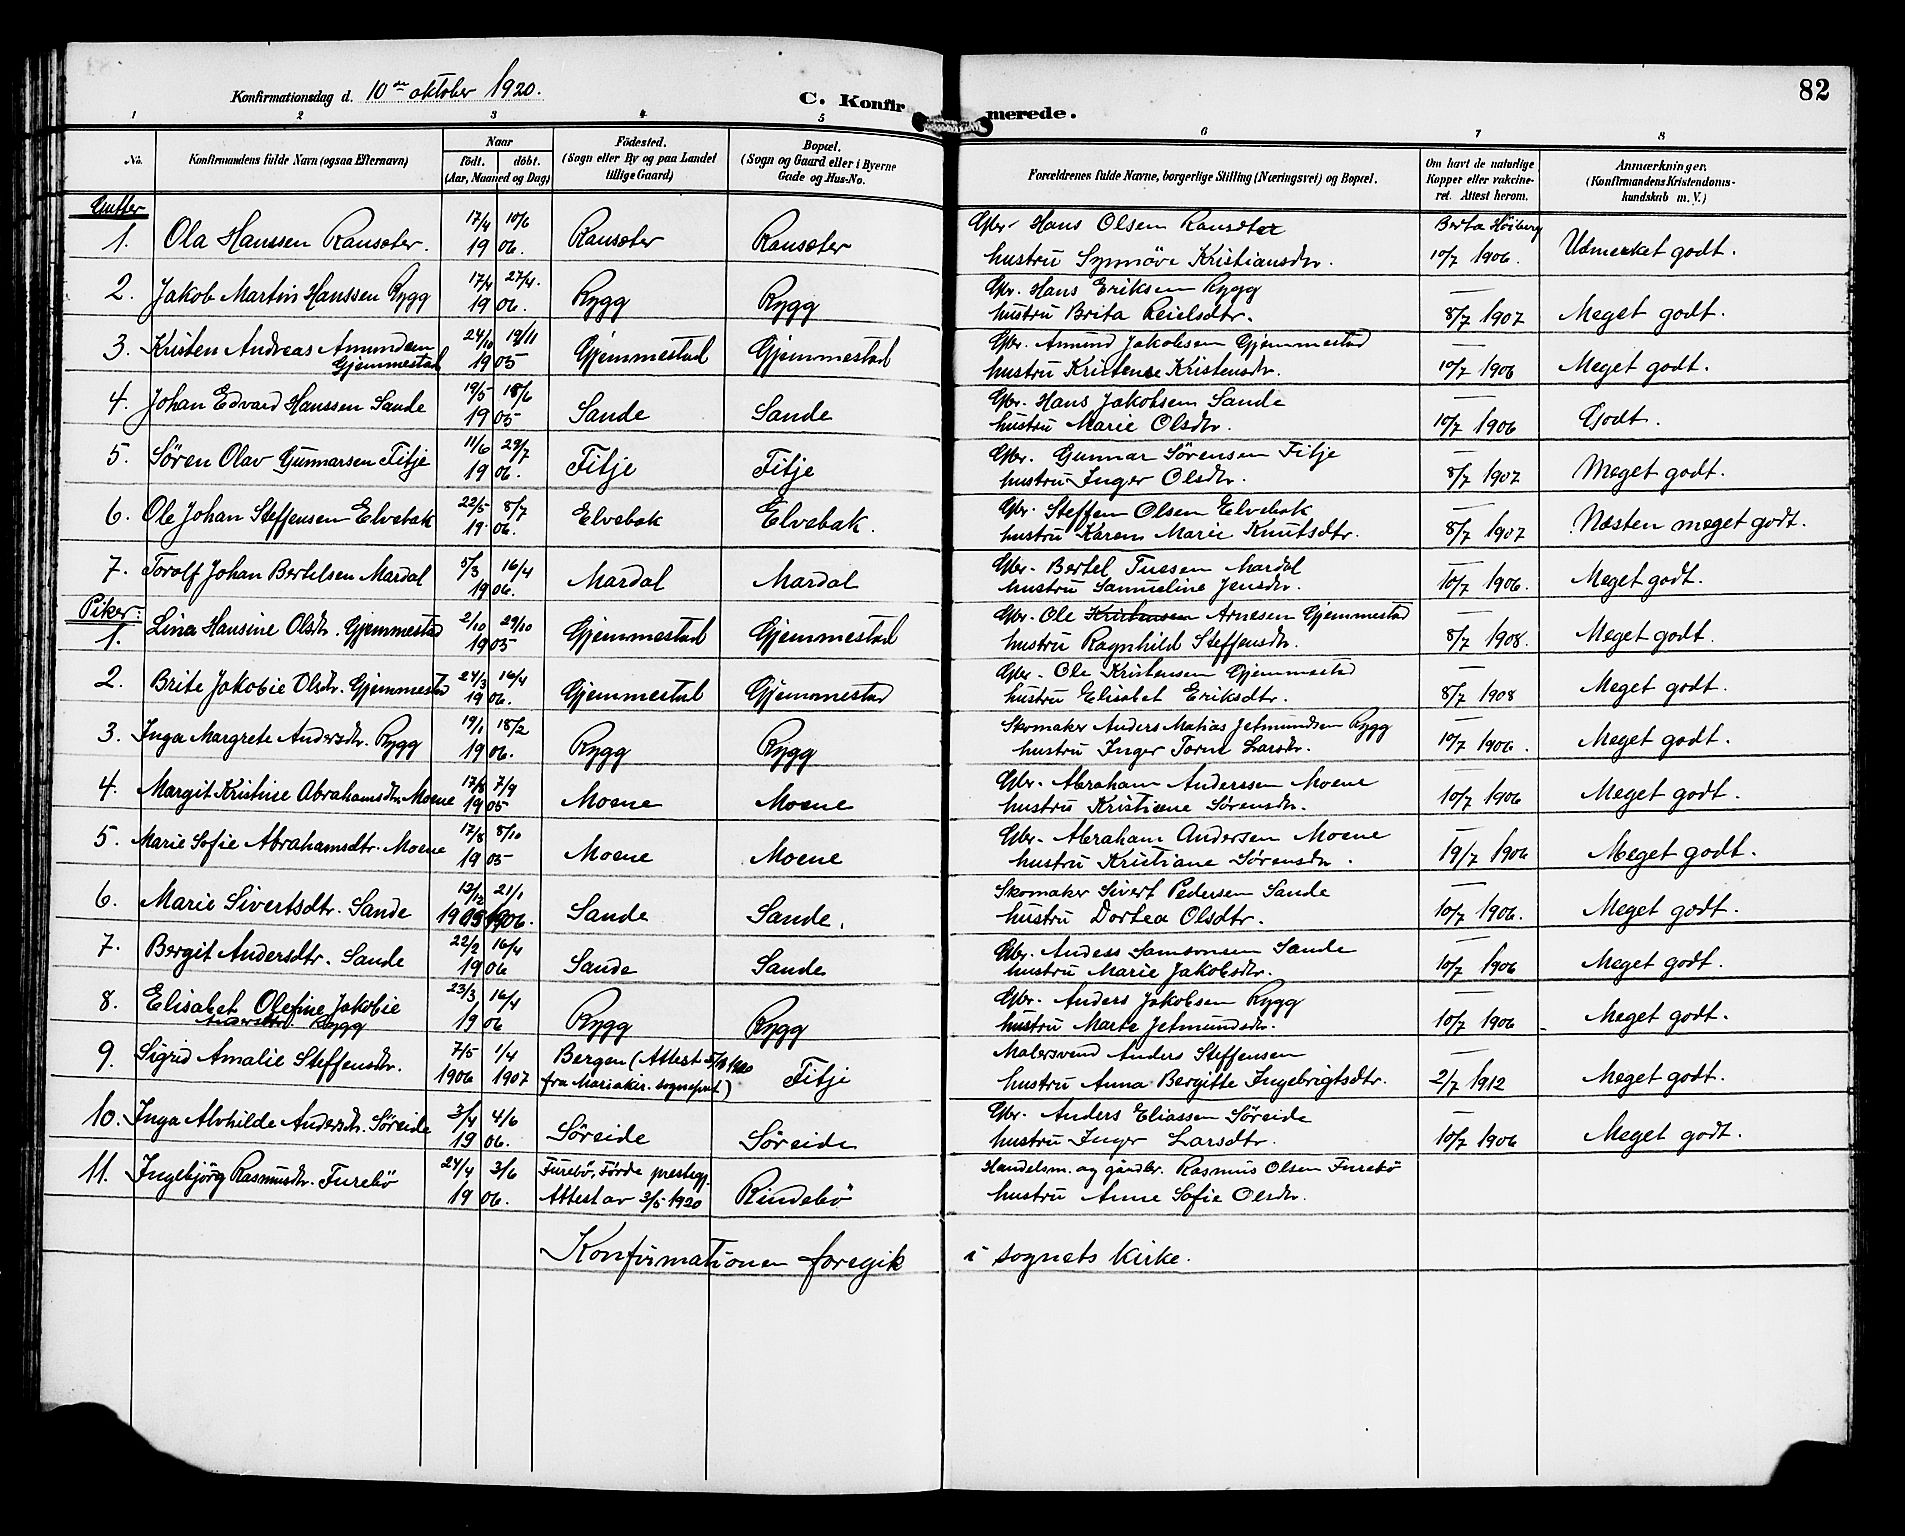 82
Konfirmationsdag d. 10de oktober 1920.
C. Konfirmerede.
1 2 3 4 5 6 7 8
No.
Konfirmandens fulde Navn (ogsaa Efternavn)
Naar
født. døbt.
(Aar, Maaned og Dag)
Födested.
(Sogn eller By og paa Landet
tillige Gaard)
Bopæl.
(Sogn og Gaard eller i Byerne
Gade og Hus-No.
Forældrenes fulde Navne, borgerlige Stilling (Næringsvei) og Bopæl.
Om havt de naturlige
Kopper eller vakcine-
ret. Attest herom.
Anmærkninger.
(Konfirmandens Kristendoms-
kundskab m. V.)
Gutter
1. Ola Hanssen Ransæter. 17/4 10/6 1906. Ransæter Ransæter Gbr. Hans Olsen Ransæter Berta Höiberg
hustru Synnøve Kristiansdtr. 10/7 1906. Udmerket godt.
2. Jakob Martin Hanssen Rygg 17/4 27/4. 1906. Rygg Rygg Gbr. Hans Eriksen Rygg —
hustru Brita Reielsdtr. 8/7 1907 Meget godt.
3. Kristen Andreas Amundsen 24/10 19/11 Gbr. Amund Jakobsen Gjemmestad —
Gjemmestad 1905 Gjemmestad Gjemmestad hustru Kristense Kristensdtr. 10/7 1906 Meget godt.
4. Johan Edvard Hanssen Sande 19/5 18/6 1905 Sande Sande Gbr. Hans Jakobsen Sande —
hustru Marie Olsdtr. 10/7 1906 Godt.
5. Søren Olav Gunnarsen Fitje 11/6 29/7 1906. Fitje Fitje Gbr. Gunnar Sørensen Fitje —
hustru Inger Olsdtr. 8/7 1907 Meget godt.
6. Ole Johan Steffensen Elvebak 22/5 8/7 1906. Elvebak Elvebak. Gbr. Steffen Olsen Elvebak —
hustru Karen Marie Knutsdtr. 8/7 1907 Næsten meget godt.
7. Torolf Johan Bertelsen Mardal 5/3 16/4 1906. Mardal Mardal Gbr. Bertel Tuesen Mardal —
hustru Samueline Jensdtr. 10/7 1906. Meget godt.
Piker:
1. Lina Hansine Olsdtr. Gjemmestad 2/10 29/10 1905 Gjemmestad Gjemmestad Gbr. Ole Kristensen Arnesen Gjemmestad
hustru Ragnhild Steffensdtr. 8/7 1908. Meget godt.
2. Brite Jakobie Olsdtr. Gjemmestad 24/3 16/4 1906. Gjemmestad Gjemmestad Gbr. Ole Kristensen Gjemmestad —
hustru Elisabet Eriksdtr. 8/7 1908 Meget godt.
3. Inga Margrete Andersdtr. Rygg 19/1 18/2 1906. Rygg Rygg Skomaker Anders Matias Jetmundsen Rygg —
hustru Inger Larsdtr. 10/7 1906. Meget godt.
4. Margit Kristine Abrahamsdtr. Moene 17/8 7/9 1905 Moene Moene Gbr. Abraham Anderssen Moene —
hustru Kristiane Sørensdtr. 10/7 1906 Meget godt.
5. Marie Sofie Abrahamsdtr. Moene 17/8 8/10 1905 Moene Moene Gbr. Abraham Andersen Moene —
hustru Kristiane Sørensdtr. 19/7 1906 Meget godt.
6. Marie Sivertsdtr. Sande 12/12 21/1 1905 1906. Sande Sande. Skomaker Sivert Pedersen Sande —
hustru Dortea Olsdtr. 10/7 1906. Meget godt.
7. Bergit Andersdtr. Sande 22/2 16/4 1906 Sande Sande Gbr. Anders Samsonsen Sande —
hustru Marie Jakobsdtr. 10/7 1906 Meget godt.
8. Elisabet Olefine Jakobie 23/3 16/4 Gbr. Anders Jakobsen Rygg —
Andersdtr. Rygg 1906 Rygg Rygg hustru Marte Jetmundsdtr. 10/7 1906 Meget godt.
9. Sigrid Amalie Steffensdtr. 7/5 1906 1/4 1907 Bergen (Attest 5/10 1920 Malersvend Anders Steffensen —
fra Mariakir. sognepr.) Fitje hustru Anna Bergitte Ingebrigtsdtr. 2/7 1912 Meget godt.
10. Inga Alvhilde Andersdtr. Søreide 3/4 4/6 1906. Søreide Søreide Gbr. Anders Eliassen Søreide —
hustru Inger Larsdtr. 10/7 1906 Meget godt.
11. Ingebjørg Rasmusdtr. Furebö 24/4 3/6 1906. Furebö, Förde prestegj. Handelsm. og gårdbr. Rasmus Olsen Furebö
Attest av 3/5 1920 Rindebö hustru Anne Sofie Olsdtr.
Konfirmationen foregik i sognets kirke.